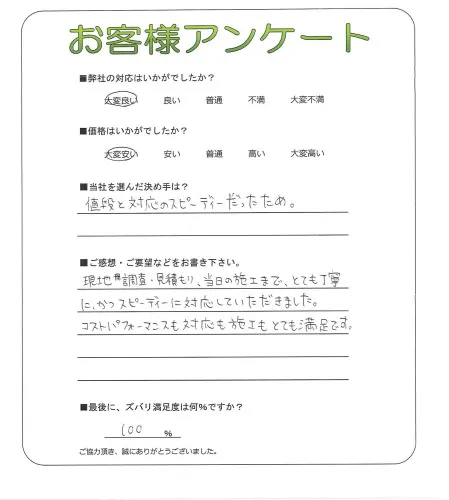 お客様アンケート
■弊社の対応はいかがでしたか？
大変良い 良い 普通 不満 大変不満
■価格はいかがでしたか？
大変安い 安い 普通 高い 大変高い
■当社を選んだ決め手は？
値段と対応のスピーディーだったため。
■ご感想・ご要望などをお書き下さい。
現地調査・見積もり、当日の施工まで、とても丁寧
に、かつスピーディーに対応していただきました。
コストパフォーマンスも対応も施工もとても満足です。
■最後に、ズバリ満足度は何%ですか？
100 %
ご協力頂き、誠にありがとうございました。